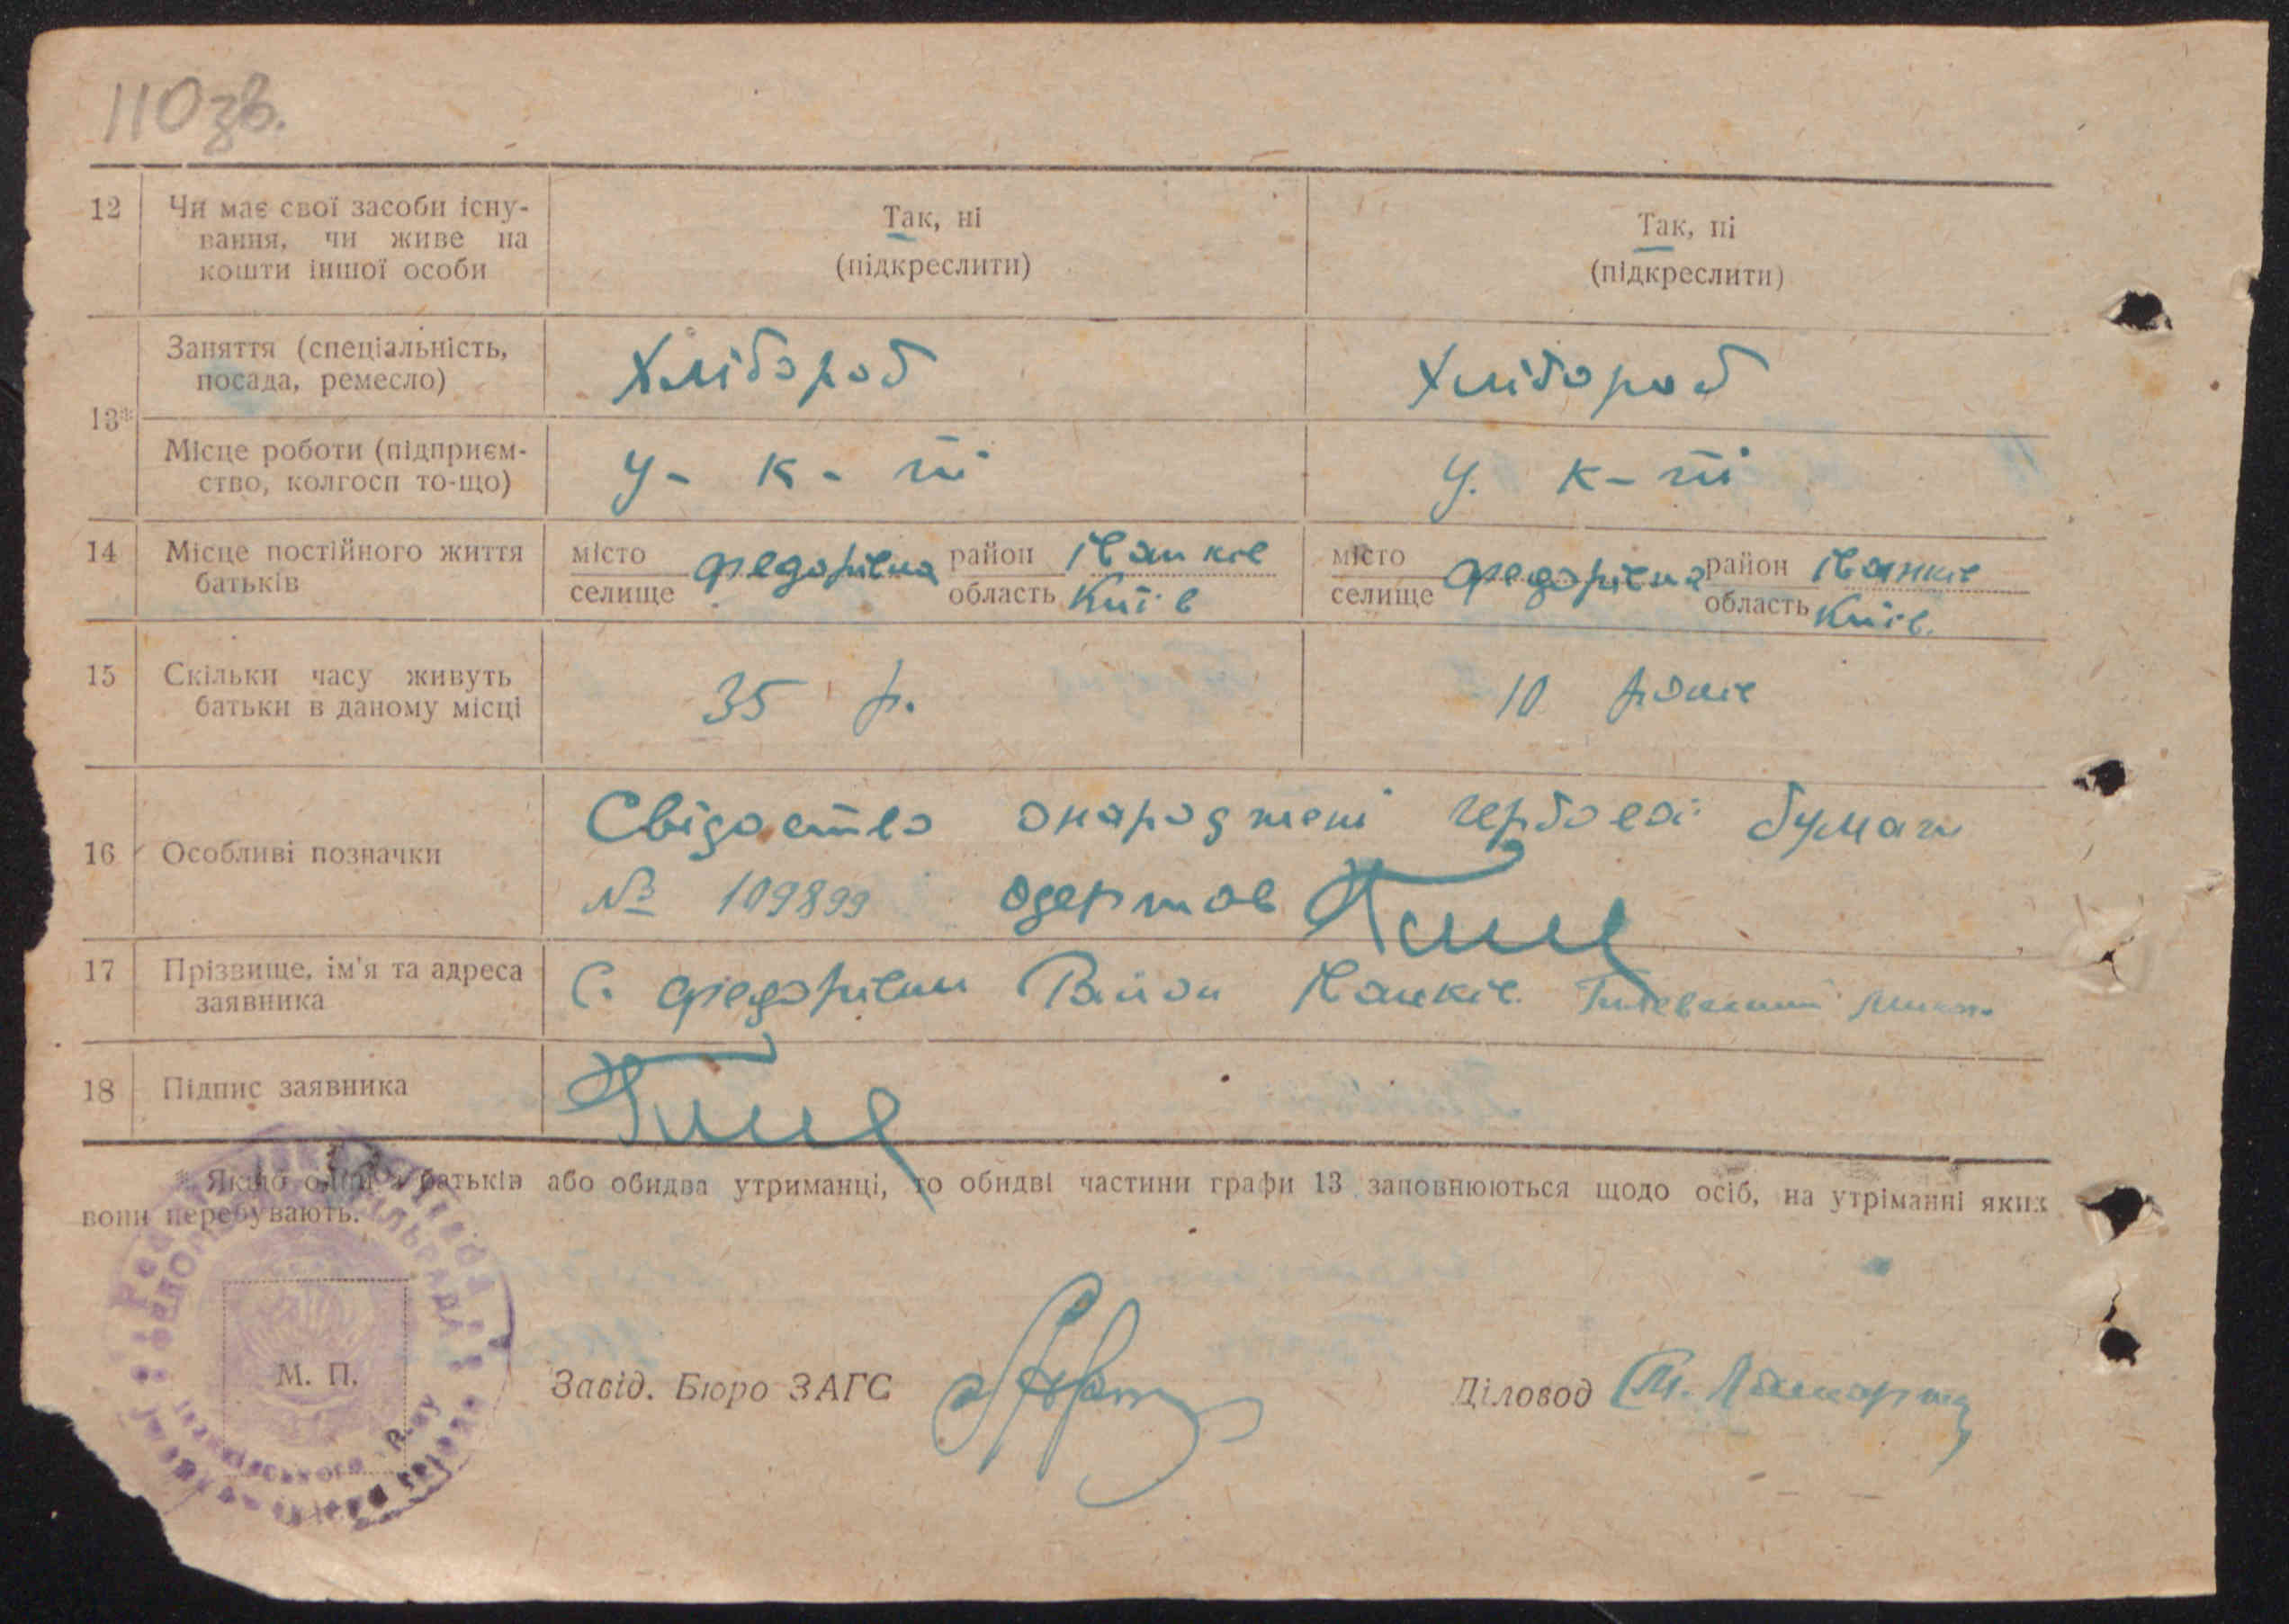 110 зв.
12 Чи має свої засоби існу-
вання, чи живе на
кошти іншої особи
Так, ні
(підкреслити)
Так, ні
(підкреслити)
13*
Заняття (спеціальність,
посада, ремесло)
Хлібороб
Хлібороб
Місце роботи (підприєм-
ство, колгосп то-що)
У- к-ті
У. к- ті
14 Місце постійного життя
батьків
місто
селище
Федорівка
район Іванків
область Київ
місто
селище
Федорівка
район Іванків
область Київ.
15 Скільки часу живуть
батьки в даному місці
35 р.
10 років
16 Особливі позначки
Свідоцтво онароджені гербової бумаги
№ 109899 одержав
17 Прізвище, ім'я та адреса
заявника
С. Федорівки Район Іванків.
18 Підпис заявника
* Якщо один з батьків або обидва утриманці, то обидві частини графи 13 заповнюються щодо осіб, на утріманні яких
вони перебувають.
М. П.
Іванківського Р-ну
Завід. Бюро ЗАГС
Діловод